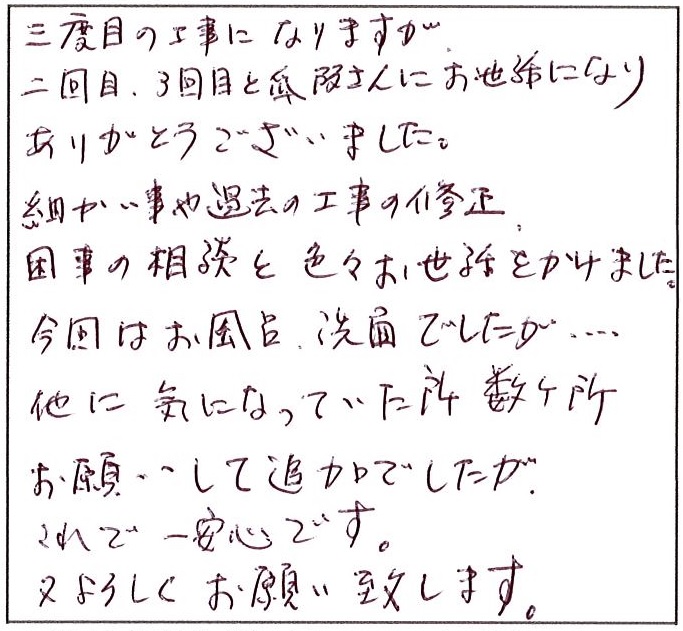 三度目の工事になりますが、
二回目、3回目と 阪さんにお世話になり
ありがとうございました。
細かい事や過去の工事の修正、
困事の相談と色々お世話をかけました。
今回はお風呂、洗面でしたが‥‥
他に気になっていた所数ヶ所
お願いして追加でしたが、
これで一安心です。
又よろしくお願い致します。